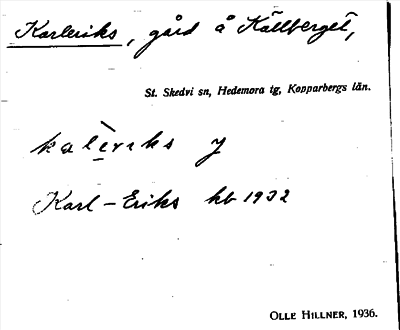 Karleriks, gård å Källberget,
St. Skedvi sn, Hedemora tg, Kopparbergs län.
kalèriks y
Karl-Eriks hb 1932
OLLE HILLNER, 1936.